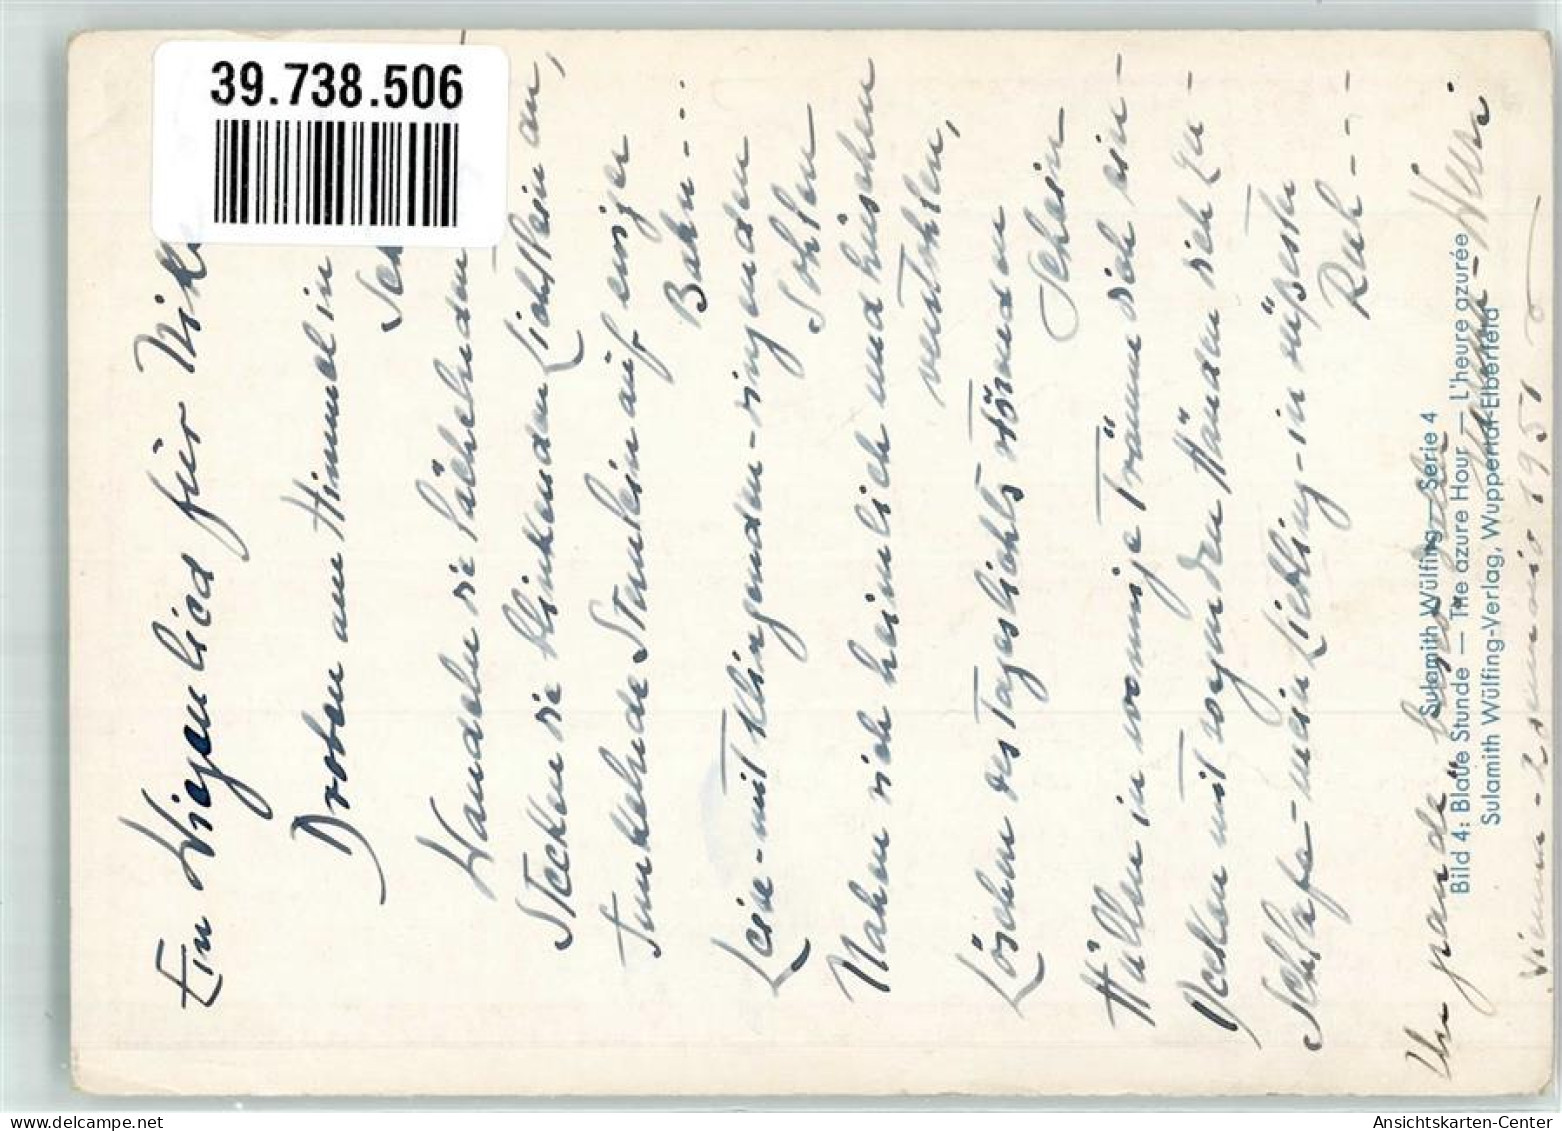 39.738.506
Ein Wiegenlied für Nik
Droben am Himmel in
Sch
Wandeln die lächelnden
Stecken die blinkenden Lichtlein an,
Funkelnde Sternlein auf ewiger
Bahn...
Leise - mit klingenden - singenden
Sohlen
Nahen sich heimlich und huschen
verstohlen,
Löschen des Tageslichts störenden
Schein
Hüllen in wonnige Träume dich ein -
Decken mit sorgenden Händen dich zu -
Schlafe - mein Liebling - in süßester
Ruh - - -
Sulamith Wülfing — Serie 4
Bild 4: Blaue Stunde — The azure Hour — L'heure azurée
Sulamith Wülfing-Verlag, Wuppertal-Elberfeld
1951
Ansichtskarten-Center